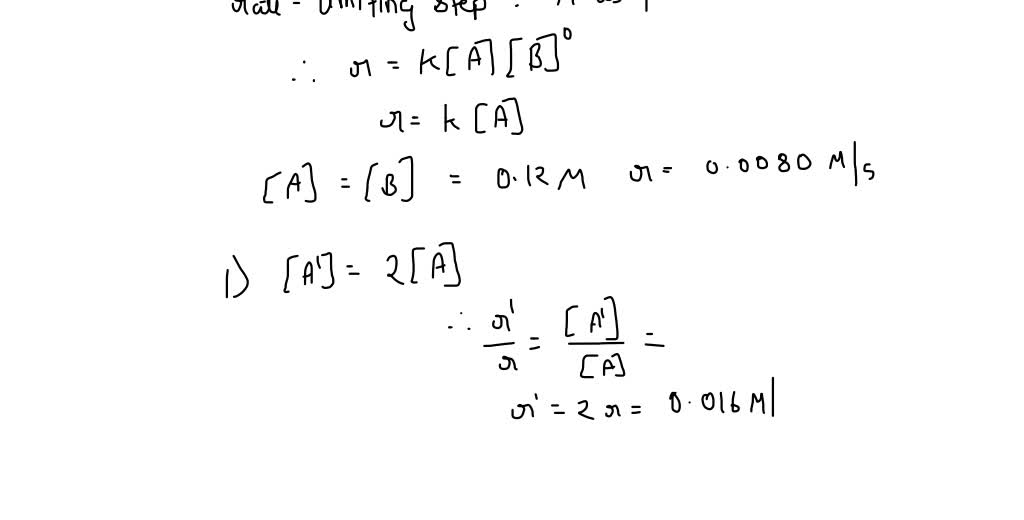 rate - limiting step :
∴ r = k[A][B]⁰
r = k [A]
[A] = [B] = 0.12 M r = 0.0080 M/s
1) [A'] = 2[A]
∴ r'/r = [A']/[A] =
r' = 2 r = 0.016 M|